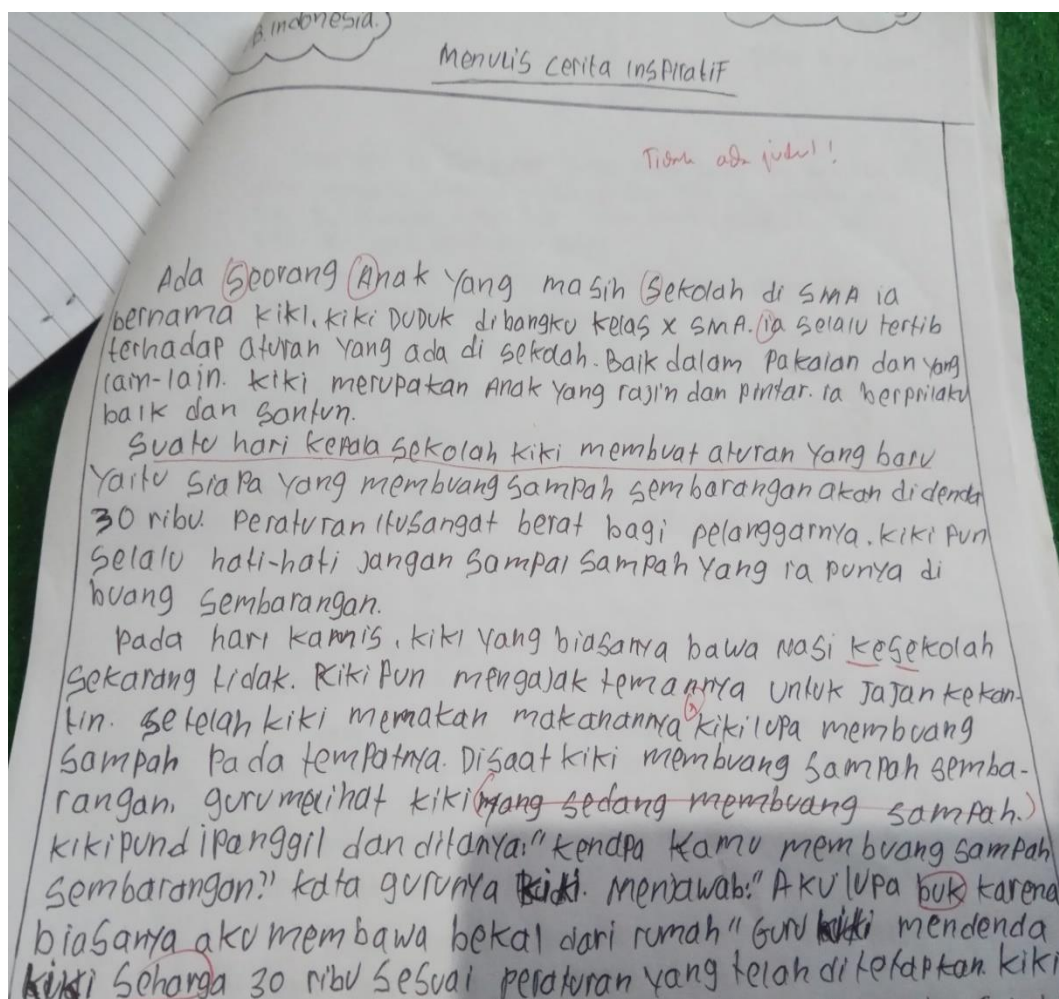 B. Indonesia.
Menulis cerita Inspiratif
Tidak ada judul!
Ada Seorang Anak Yang masih Sekolah di SMA ia
bernama Kiki. Kiki DUDUK dibangku kelas X SMA. ia selalu tertib
terhadap aturan Yang ada di sekolah. Baik dalam Pakaian dan yang
lain-lain. Kiki merupakan Anak Yang rajin dan Pintar. ia berprilaku
baik dan santun.
Suatu hari kepala sekolah Kiki membuat aturan Yang baru
Yaitu Siapa Yang membuang Sampah Sembarangan akan didenda
30 ribu. Peraturan itu sangat berat bagi pelanggarnya. Kiki Pun
Selalu hati-hati Jangan Sampai Sampah Yang ia punya di
buang Sembarangan.
Pada hari kamis, Kiki Yang biasanya bawa Nasi kesekolah
Sekarang tidak. Kiki Pun mengajak temannya untuk Jajan kekan-
tin. Setelah Kiki memakan makanannya Kiki lupa membuang
Sampah Pada tempatnya. Disaat Kiki membuang Sampah semba-
rangan, guru melihat Kiki yang sedang membuang sampah.
Kiki pun dipanggil dan ditanya:" kenapa Kamu membuang Sampah
Sembarangan?" kata gurunya Kiki. Menjawab:" Aku lupa buk karena
biasanya aku membawa bekal dari rumah" Guru Kiki mendenda
Kiki Seharga 30 ribu Sesuai peraturan yang telah ditetapkan. Kiki